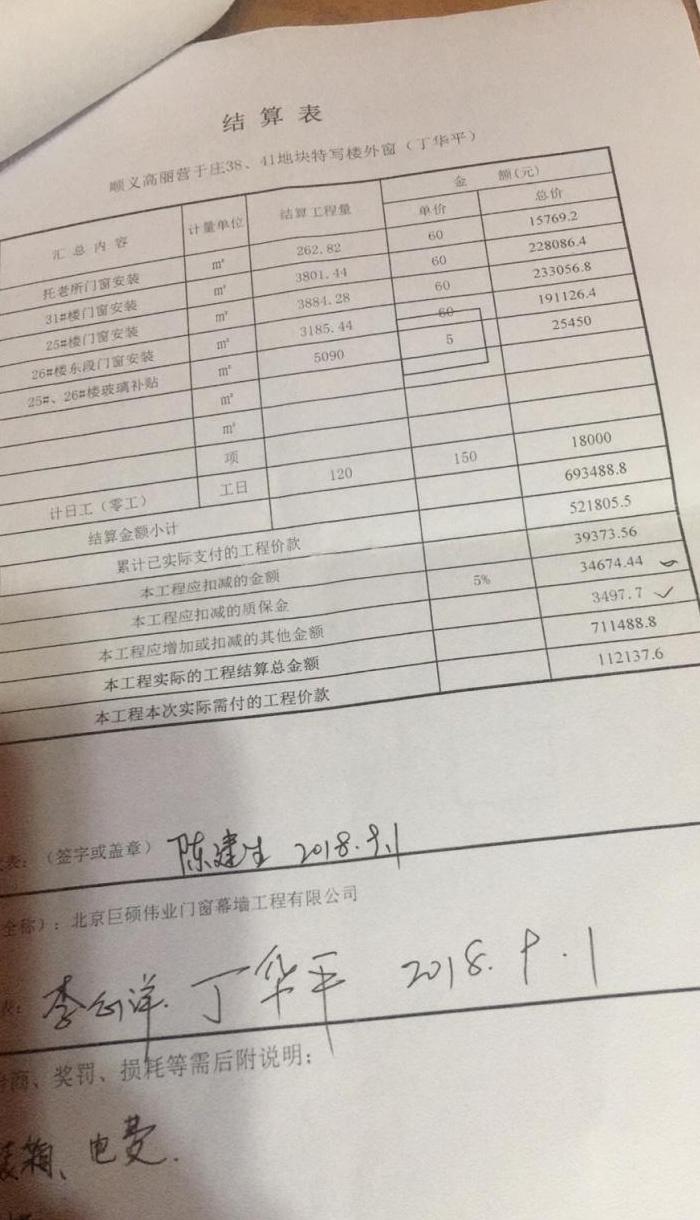 结算表
顺义高丽营于庄38、41地块特写楼外窗（丁华平）
汇总内容 计量单位 结算工程量 金额(元)
单价 总价
托老所门窗安装 m² 262.82 60 15769.2
31#楼门窗安装 m² 3801.44 60 228086.4
25#楼门窗安装 m² 3884.28 60 233056.8
26#楼东段门窗安装 m² 3185.44 60 191126.4
25#、26#楼玻璃补贴 m² 5090 5 25450
m²
m²
项
计日工（零工） 工日 120 150 18000
结算金额小计 693488.8
累计已实际支付的工程价款 521805.5
本工程应扣减的金额 39373.56
本工程应扣减的质保金 5% 34674.44
本工程应增加或扣减的其他金额 3497.7
本工程实际的工程结算总金额 711488.8
本工程本次实际需付的工程价款 112137.6
表：（签字或盖章） 陈建生 2018.9.1
全称）：北京巨硕伟业门窗幕墙工程有限公司
表： 李 洋. 丁华平 2018.9.1
商、奖罚、损耗等需后附说明：
箱、电费.